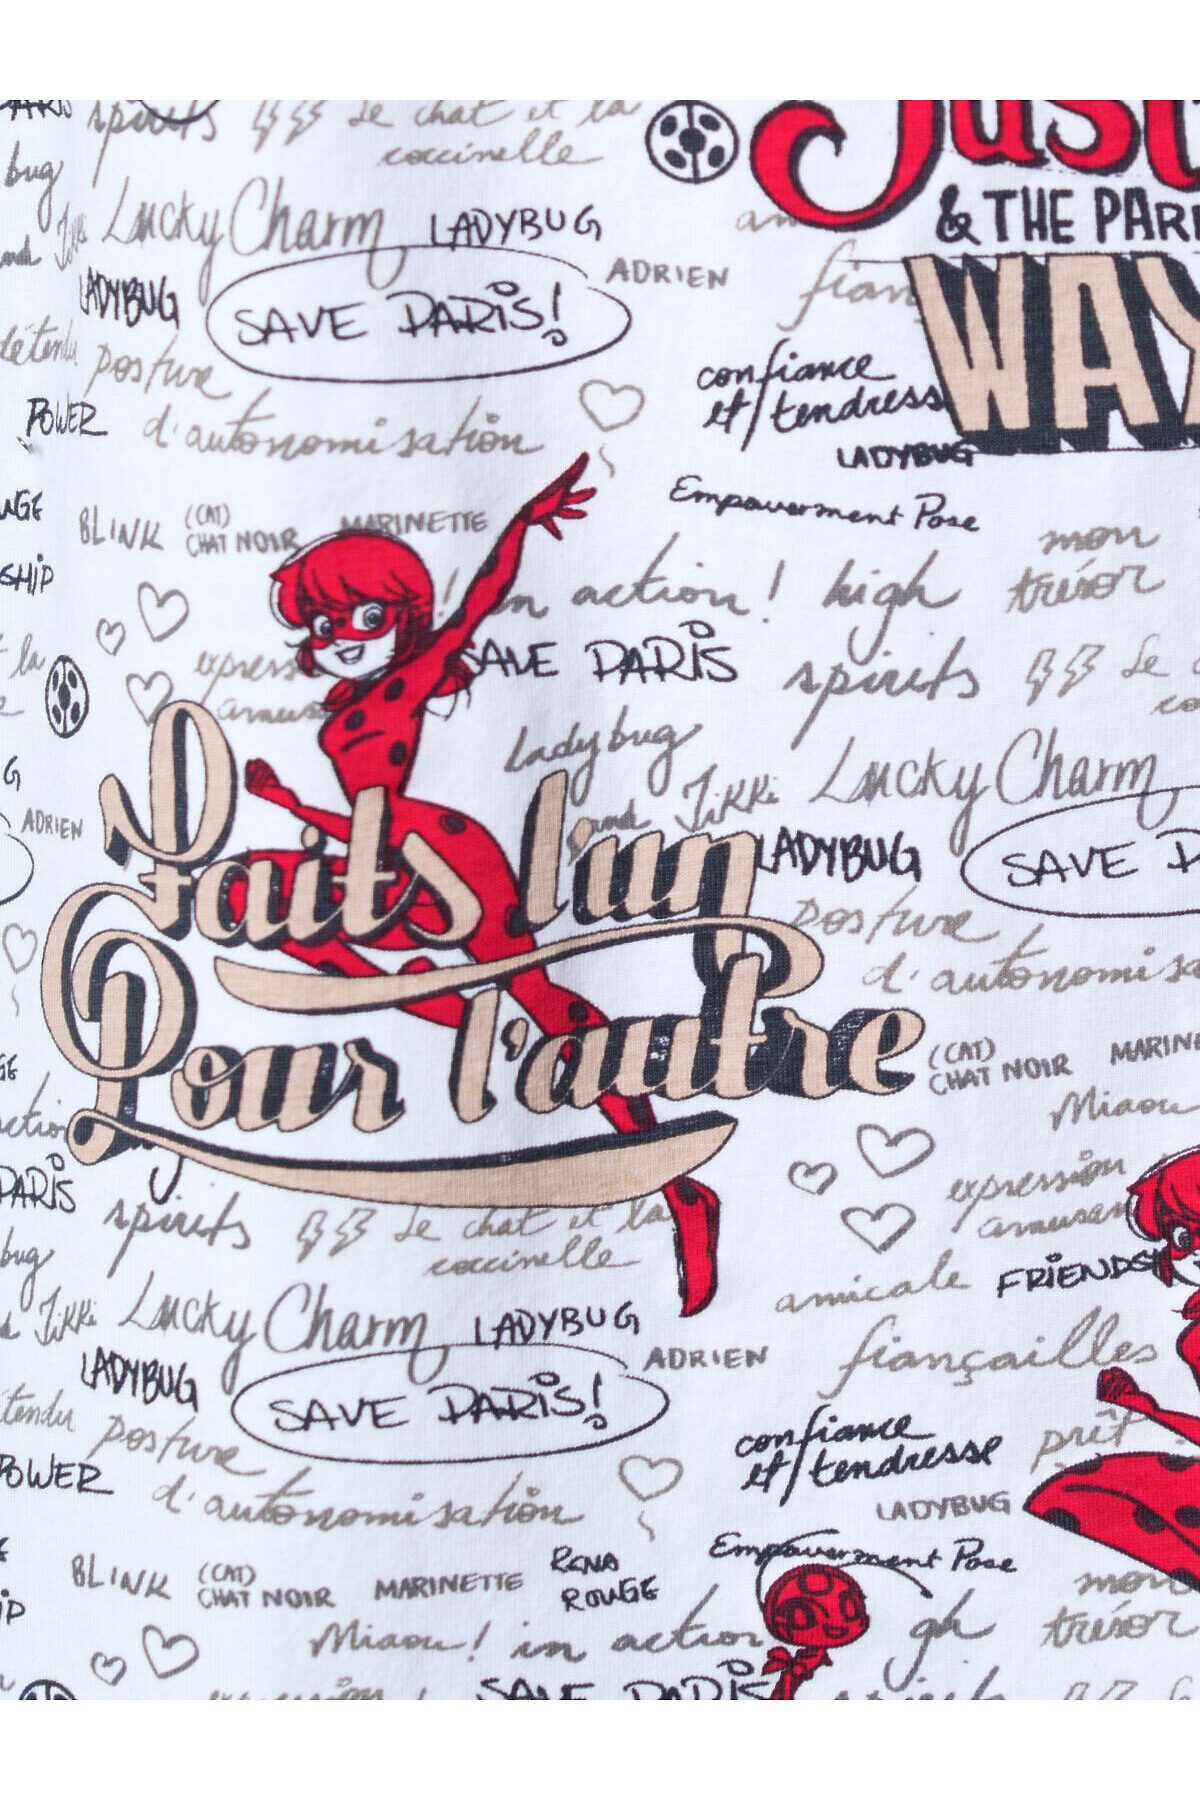 spirits Le chat et la
coccinelle
bug
Just
& THE PAR
WAY
Lucky Charm LADYBUG
ADRIEN
LADYBUG
SAVE PARIS!
détendu
posture
d'autonomisation
POWER
confiance
et/tendresse
LADYBUG
Empowerment Pose
BLINK (CAT)
CHAT NOIR MARINETTE
in action! high
mon
trésor
SHIP
SAVE PARIS
spirits Le
la
express
amusan
Ladybug
and Tikki Lucky Charm
ADRIEN
LADYBUG
SAVE P
Faits l'un
Pour l'autre
posture
d'autonomisa
(CAT)
CHAT NOIR MARINE
Miaou
PARIS
spirits Le chat et la
coccinelle
expression
amusan
bug
Tikki Lucky Charm LADYBUG
amicale FRIENDS
ADRIEN
fiançailles
LADYBUG
SAVE PARIS!
tendu
posture
d'autonomisation
POWER
confiance
et/tendresse
prêt
LADYBUG
Empowerment Pose
BLINK (CAT)
CHAT NOIR MARINETTE
RENA
ROUGE
mon
trésor
Miaou! in action gh
IP
SAVE PARIS